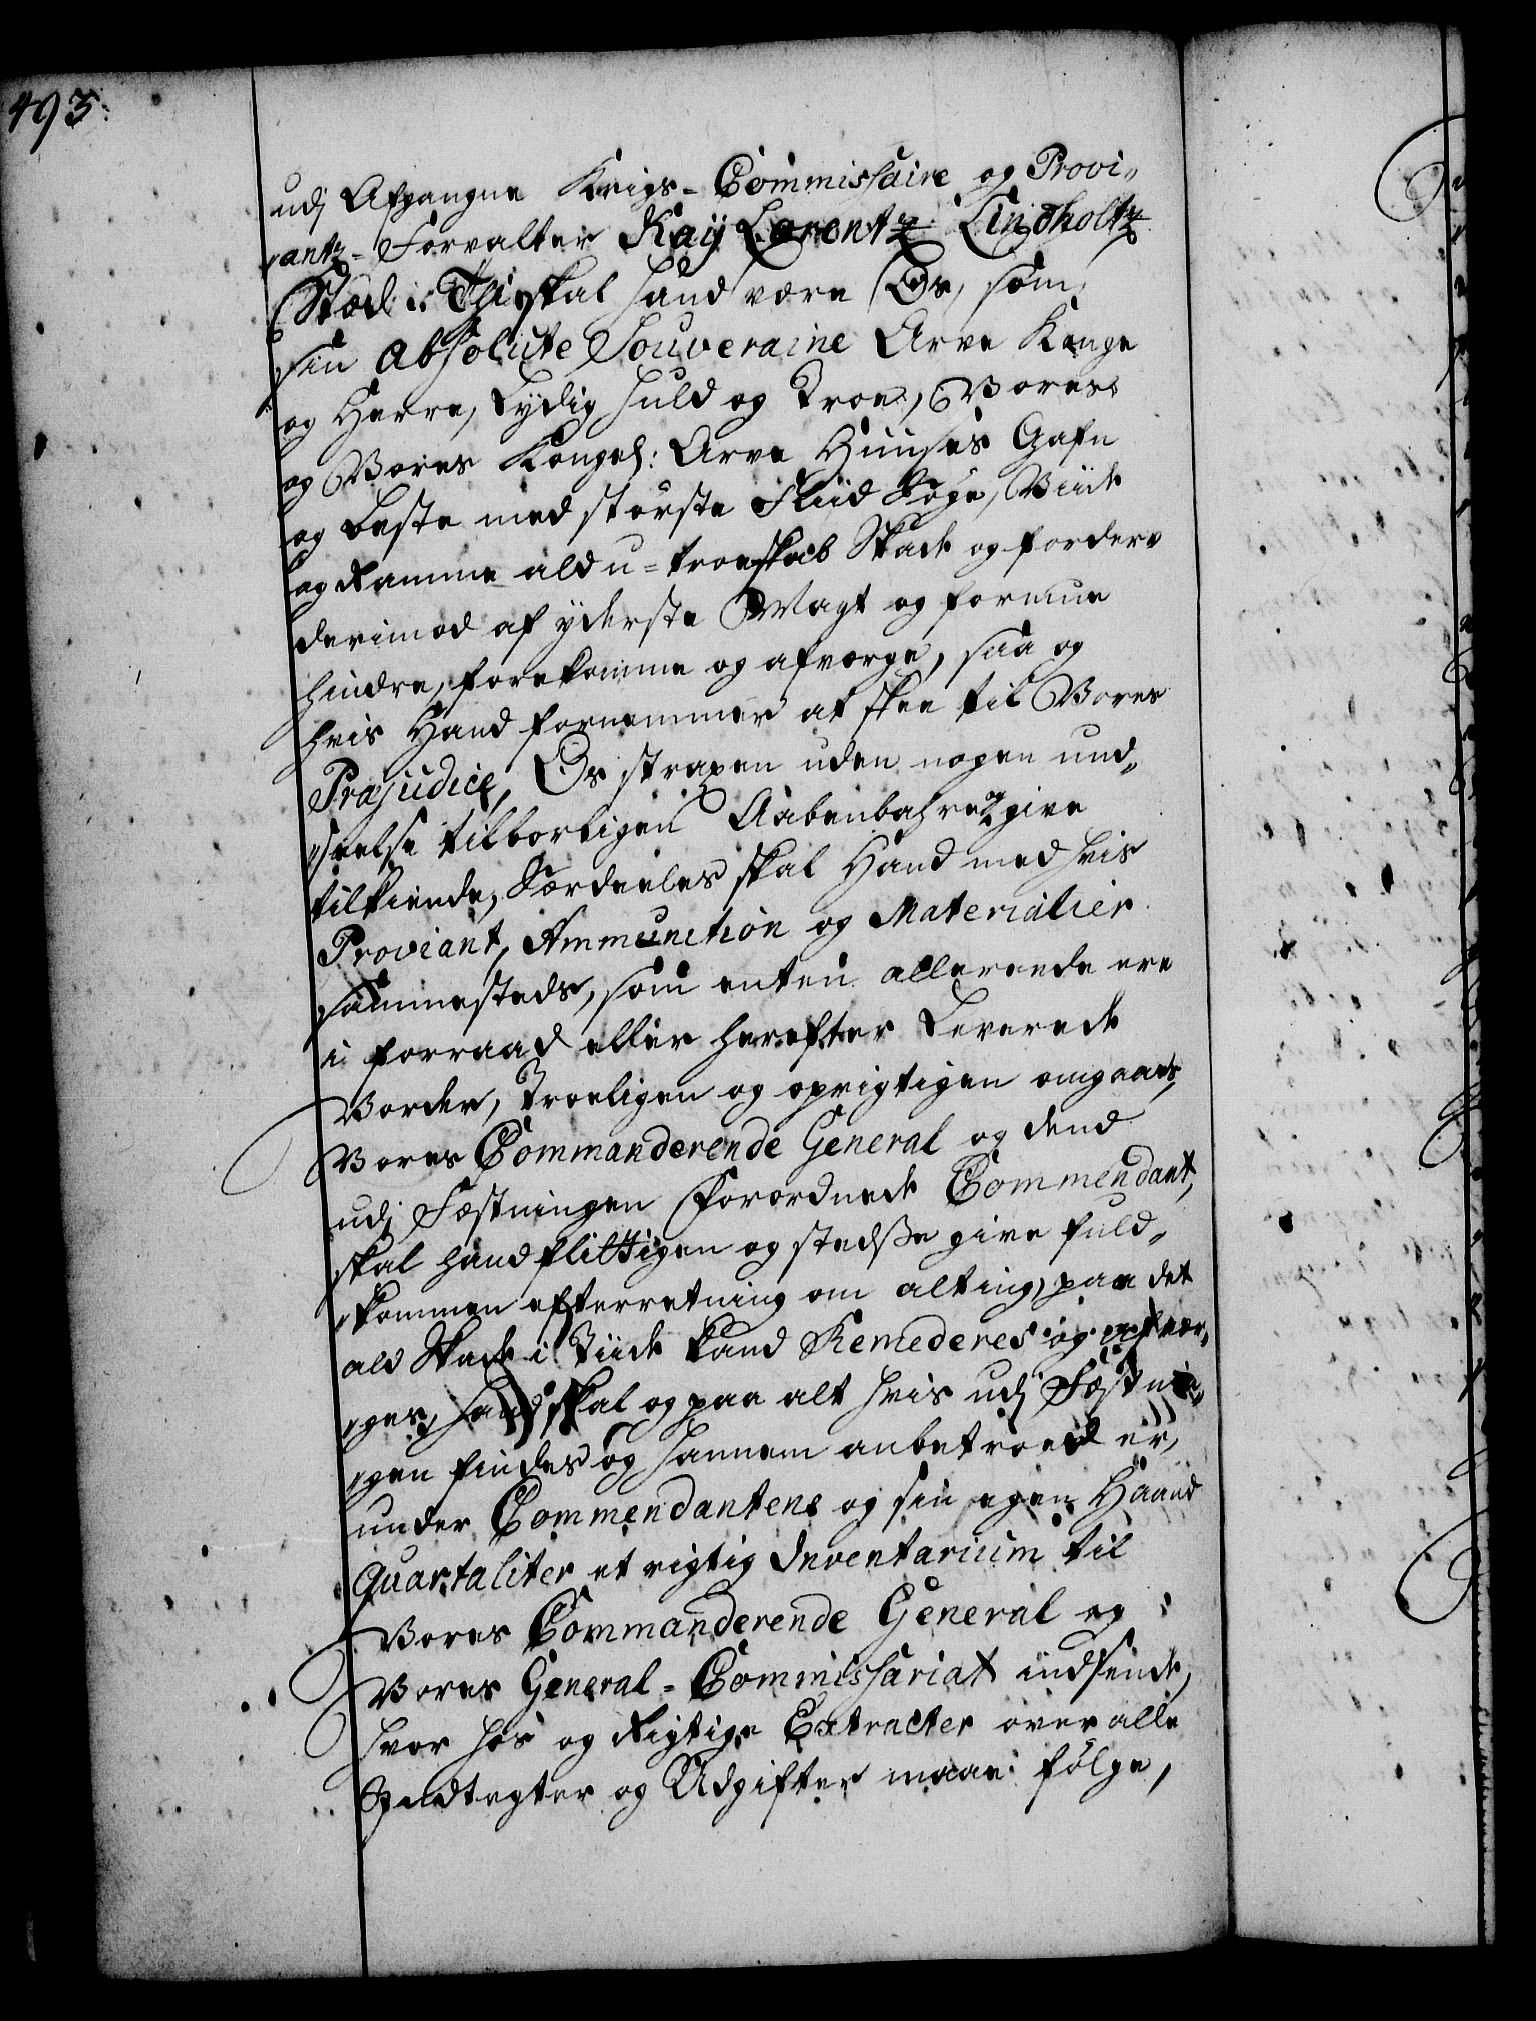 493.
udj Afgangne Krigs-Commissaire og Provi„
„antz-Forvalter Kaÿ Lorentz Lindholtz
Stæd :. Thi skal hand være Os, som
sin absolute Souveraine Arve Konge
og Herre, Lydig huld og Troe, Vores
og Vores Kongel: Arve Huuses Gafn
og beste med største Fliid Søge, Viide
og Ramme ald u-troeskab Skade og forderv
derimod af yderste Magt og formue
hindre, forekomme og afværge, saa og
hvis Hand fornemmer at skee til Vores
Præjudice, Os straxen uden nogen und„
„seelse tilbørligen Aabenbahre og give
tilkiende, Særdeeles skal Hand med hvis
Proviant, Ammunition og Materialier
sammesteds, som enten allereede ere
i forraad eller herefter Leverede
Vorder, Troeligen og oprigtigen omgaaes,
Vores Commanderende General og dend
udj Fæstningen forordnede Commendant,
skal hand flittigen og stedsse give fuld„
„kommen efterretning om alting, paa det
ald Skade i Tiide kand Remederes og afvær„
„ges, hand skal og paa alt hvis udj Fæstnin„
„gen findes og hannem anbetroed er,
under Commendantens og sin egen Haand
Quartaliter et rigtig Inventarium til
Vores Commanderende General og
Vores General-Commissariat indsende,
hvor hos og Rigtige Extracter over alle
Indtegter og Udgifter maae følge,